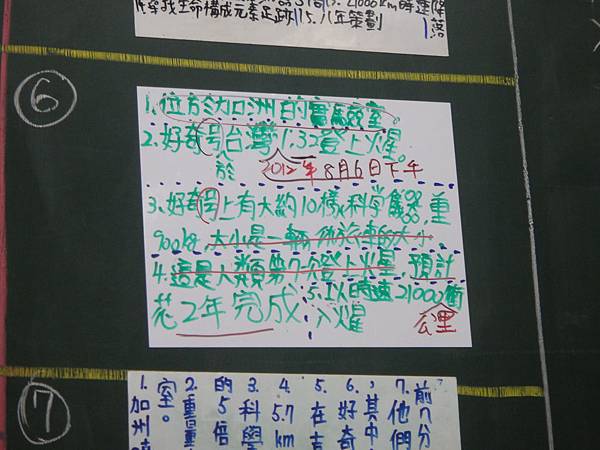 尋找生命構成元素足跡。15. 八年策劃
⑥
1. 位於加州的實驗室。
2. 好奇号台灣1:32登上火星。
於 2012年8月6日下午
3. 好奇号上有大約10樣科学儀器,重
900kg,大小是一輛休旅車的大小。
4. 這是人類第7次登上火星,預計
花2年完成
5. 以時速21000衝
入火耀
公里
⑦
1. 加州
室。
2. 重
的5倍
3. 科學
4. 5.7
km
5. 在
6. 好奇
,其中
7. 他們
前7分